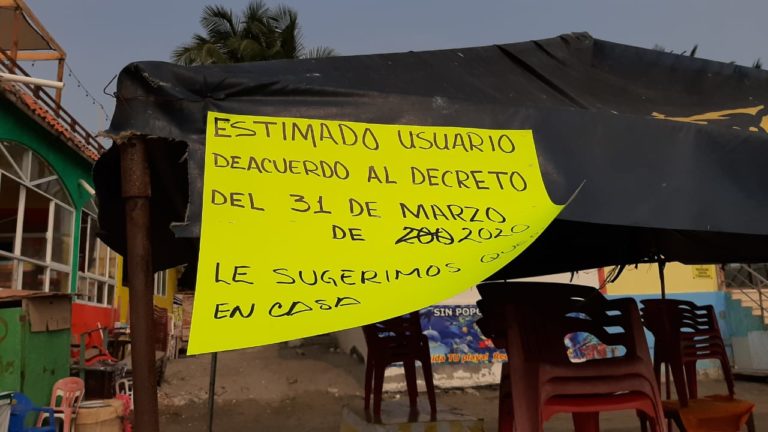 ESTIMADO USUARIO
DEACUERDO AL DECRETO
DEL 31 DE MARZO
DE 2020
LE SUGERIMOS
EN CASA
"SIN POP
TU playa!